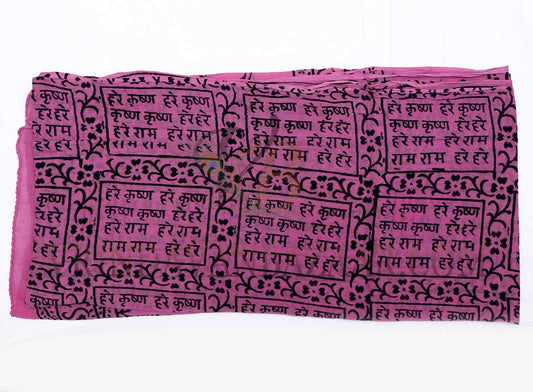 हरे कृष्ण हरे कृष्ण
कृष्ण कृष्ण हरे हरे
हरे राम हरे राम
राम राम हरे हरे
हरे कृष्ण हरे कृष्ण
कृष्ण कृष्ण हरे हरे
हरे राम हरे राम
राम राम हरे हरे
हरे कृष्ण हरे कृष्ण
कृष्ण कृष्ण हरे हरे
हरे राम हरे राम
राम राम हरे हरे
कृष्ण
हरे हरे
राम
हरे हरे
हरे कृष्ण हरे कृष्ण
कृष्ण कृष्ण हरे हरे
हरे राम हरे राम
राम राम हरे हरे
हरे कृष्ण हरे कृष्ण
कृष्ण कृष्ण हरे हरे
हरे राम हरे राम
राम राम हरे हरे
हरे कृष्ण हरे कृष्ण
कृष्ण कृष्ण हरे हरे
हरे राम हरे राम
राम राम हरे हरे
कृष्ण
हरे हरे
राम
हरे हरे
हरे कृष्ण हरे कृष्ण
हरे कृष्ण हरे कृष्ण
हरे कृष्ण हरे कृष्ण